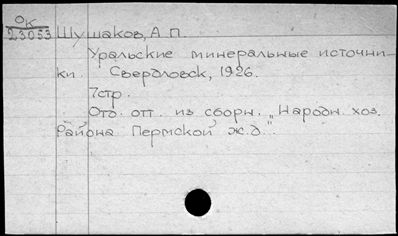 Ок
23053 Шушаков, А.П.
Уральские минеральные источни-
ки. Свердловск, 1926.
7стр.
Отд. отт. из сборн. „Народн. хоз.
Района Пермской ж.д."